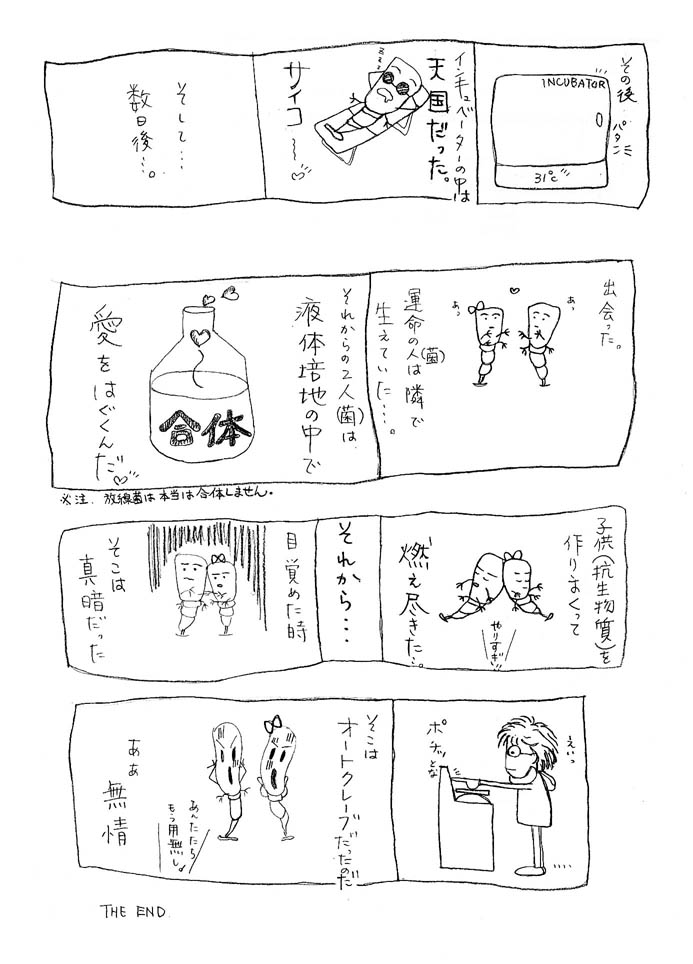 その後…
パタン
INCUBATOR
31℃
インキュベーターの中は
天国だった。
zzz
サイコ〜
そして…
数日後…。
出会った。
あっ
あっ
運命の人(菌)は隣で
生えていた…。
それからの2人(菌)は
液体培地の中で
合体
愛をはぐくんだ
※注. 放線菌は本当は合体しません。
子供(抗生物質)を
作りまくって
燃え尽きた…。
やりすぎ!!
それから…
目覚めた時
そこは
真暗だった
えいっ
ポチッとな
そこは
オートクレーブだったのだ
あんたたち
もう用無し
ああ
無情
THE END